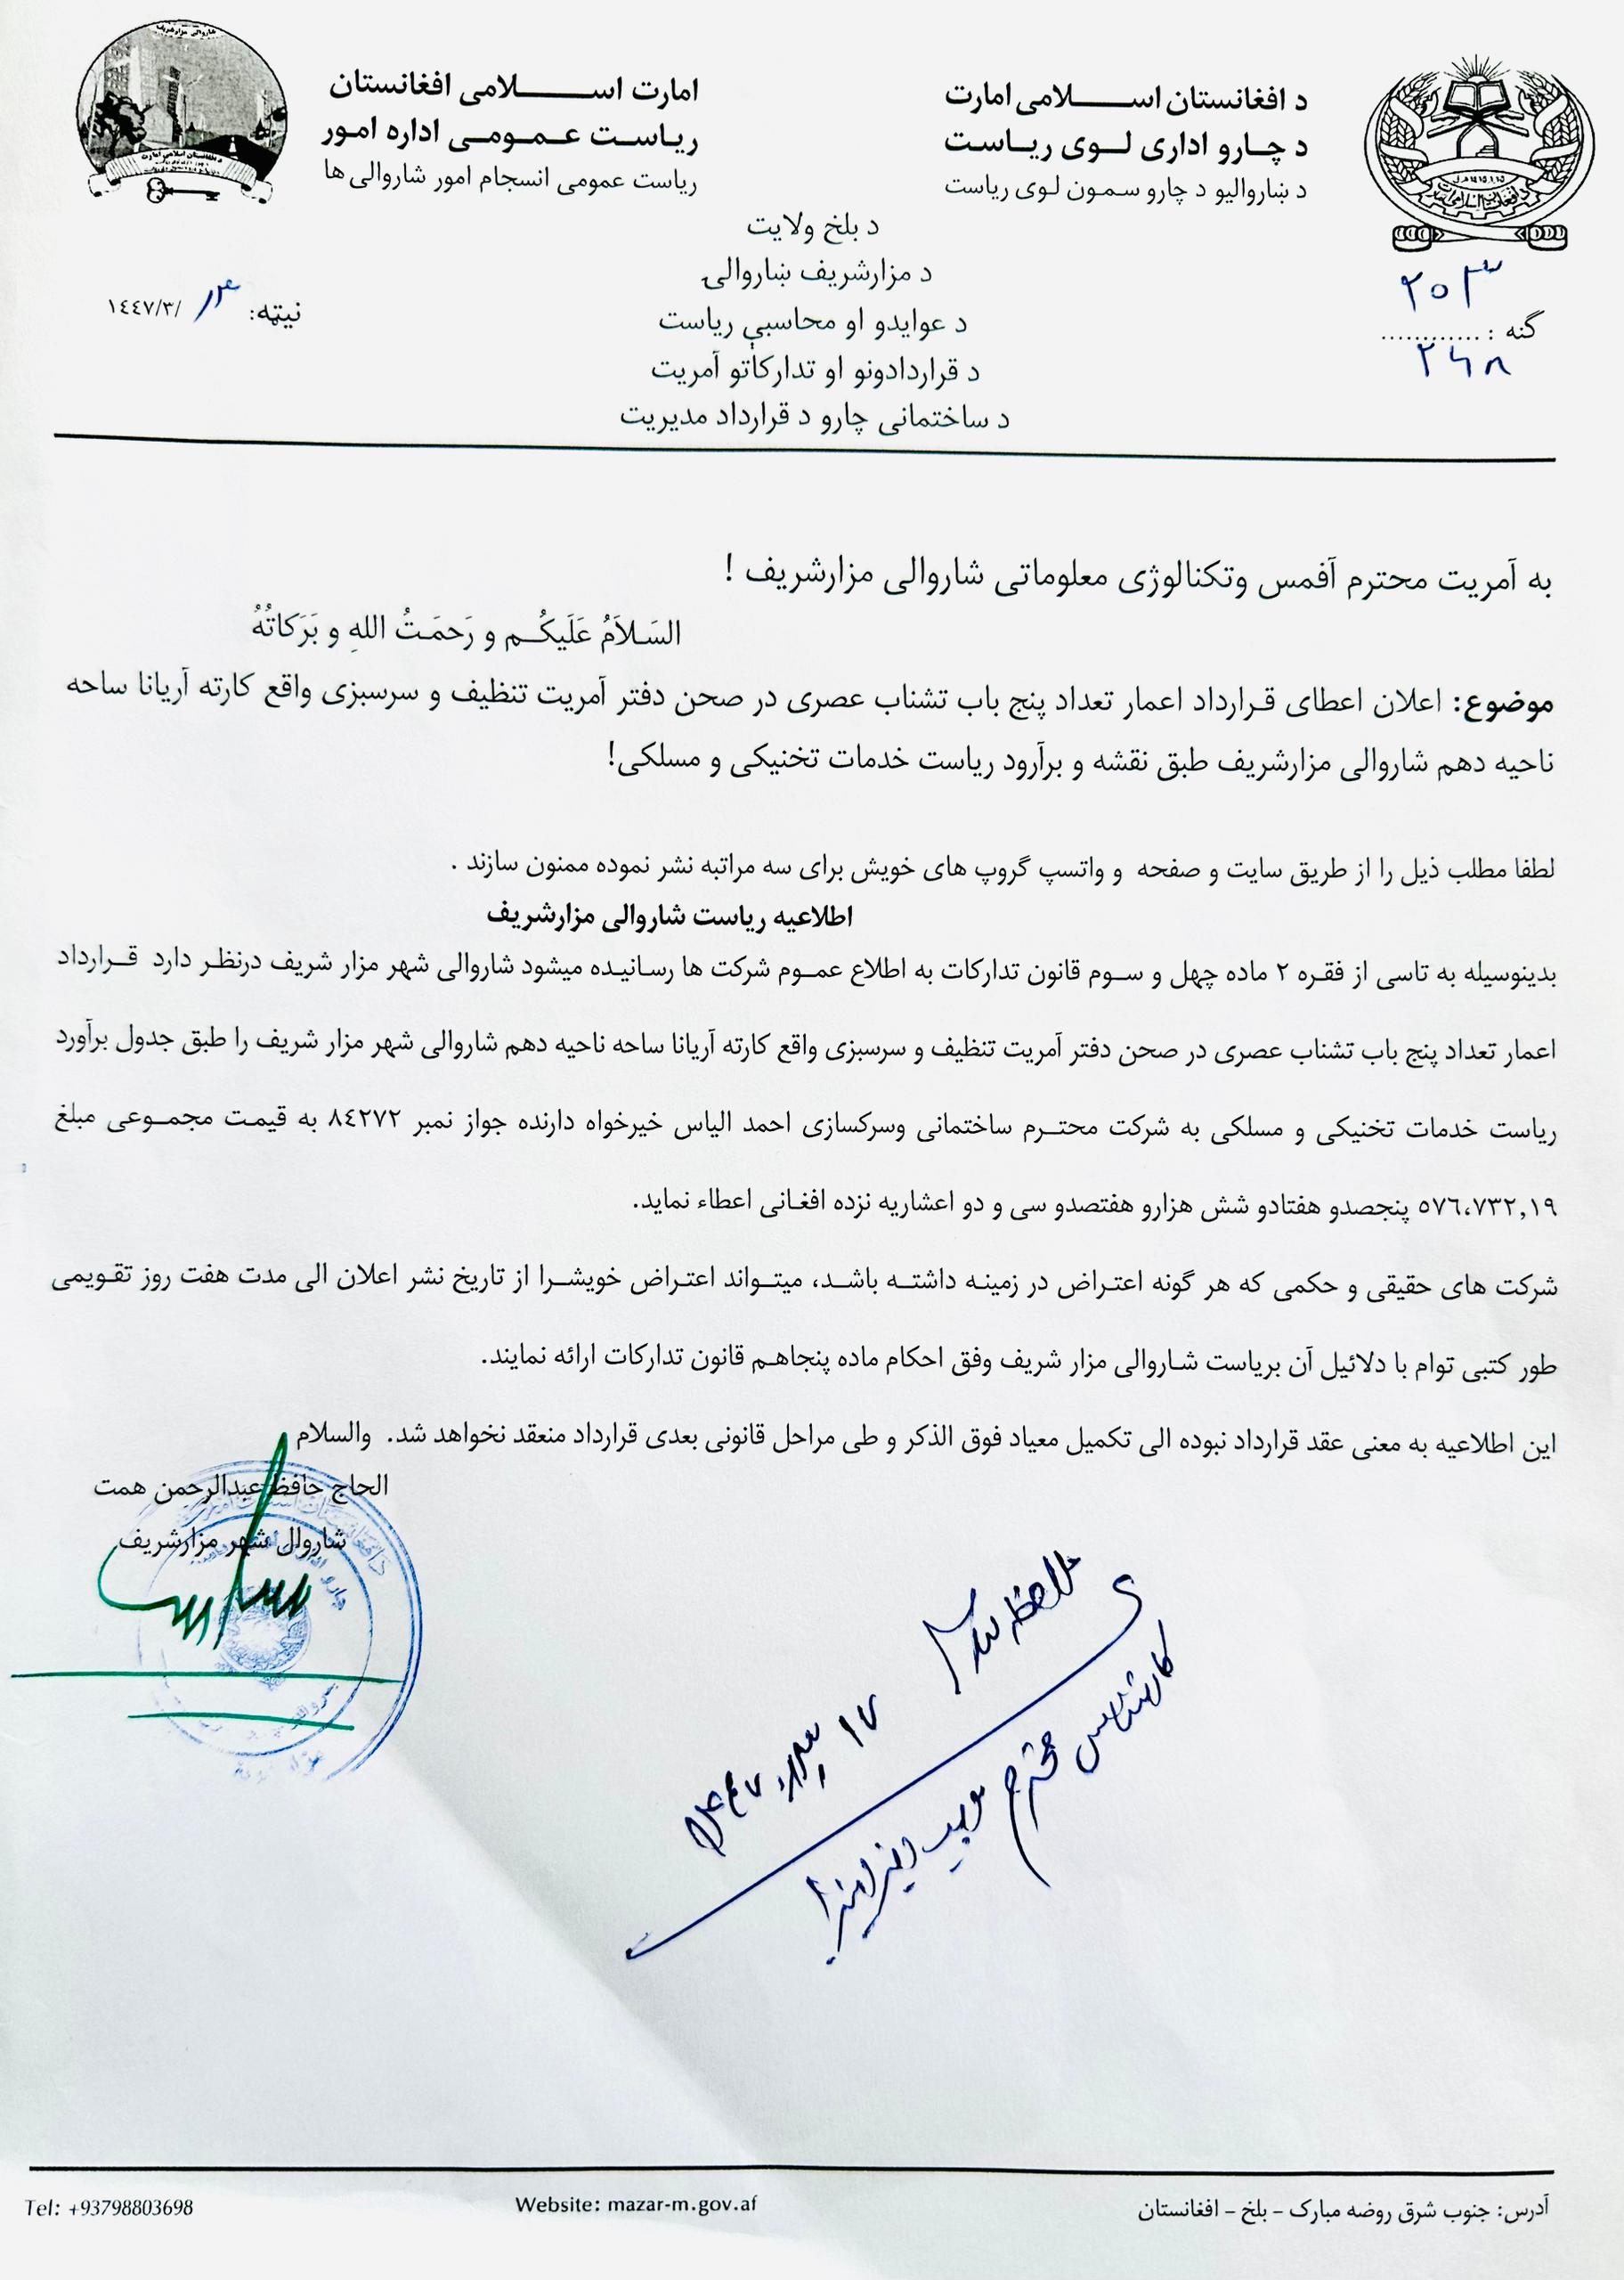 د افغانستان اســـــــلامی امارت
د چـارو اداری لـوی ریـاسـت
د ښاروالیو د چارو سمـون لـوی ریاست
امارت اســـــــلامی افغانستان
ریـاسـت عـمـومـی اداره امـور
ریاست عمومی انسجام امور شاروالی ها
د بلخ ولایت
د مزارشریف ښاروالۍ
د عوایدو او محاسبې ریاست
د قراردادونو او تدارکاتو آمریت
د ساختمانی چارو د قرارداد مدیریت
۲۰۳
گڼه : .............
۲۶۸
نیټه: ۱۴ /۱٤٤٧/٣
به آمریت محترم آفمس وتکنالوژی معلوماتی شاروالی مزارشریف !
السَـلاَمُ عَلَیکُــم و رَحمَـتُ اللهِ و بَرَکاتُهُ
موضوع: اعلان اعطای قـرارداد اعمار تعداد پنج باب تشناب عصری در صحن دفتر آمریت تنظیف و سرسبزی واقع کارته آریانا ساحه
ناحیه دهم شاروالی مزارشریف طبق نقشه و برآرود ریاست خدمات تخنیکی و مسلکی!
لطفا مطلب ذیل را از طریق سایت و صفحه و واتسپ گروپ های خویش برای سه مراتبه نشر نموده ممنون سازند .
اطلاعیه ریاست شاروالی مزارشریف
بدینوسیله به تاسی از فقـره ۲ ماده چهل و سـوم قانون تدارکات به اطلاع عمـوم شرکت ها رسـانیـده میشود شاروالی شهر مزار شریف درنظـر دارد قـرارداد
اعمار تعداد پنج باب تشناب عصری در صحن دفتر آمریت تنظیف و سرسبزی واقع کارته آریانا ساحه ناحیه دهم شاروالی شهر مزار شریف را طبق جدول برآورد
ریاست خدمات تخنیکی و مسلکی به شرکت محتـرم ساختمانی وسرکسازی احمد الیاس خیرخواه دارنده جواز نمبر ٨٤٢٧٢ به قیمـت مجمـوعی مبلغ
٥٧٦،٧٣٢,١٩ پنجصدو هفتادو شش هزارو هفتصدو سی و دو اعشاریه نزده افغـانی اعطاء نماید.
شرکت های حقیقی و حکمی که هر گونه اعتـراض در زمینـه داشتـه باشـد، میتـواند اعتـراض خویشـرا از تاریخ نشر اعلان الی مدت هفت روز تقـویمی
طور کتبی توام با دلائیل آن بریاست شـاروالی مزار شریف وفق احکام ماده پنجاهـم قانون تدارکات ارائه نمایند.
این اطلاعیه به معنی عقد قرارداد نبوده الی تکمیل معیاد فوق الذکر و طی مراحل قانونی بعدی قرارداد منعقد نخواهد شد. والسلام
الحاج حافظ عبدالرحمن همت
شاروال شهر مزارشریف
ملاحظه شد
۱۷
کارشناس محترم
آدرس: جنوب شرق روضه مبارک – بلخ – افغانستان
Website: mazar-m.gov.af
Tel: +93798803698